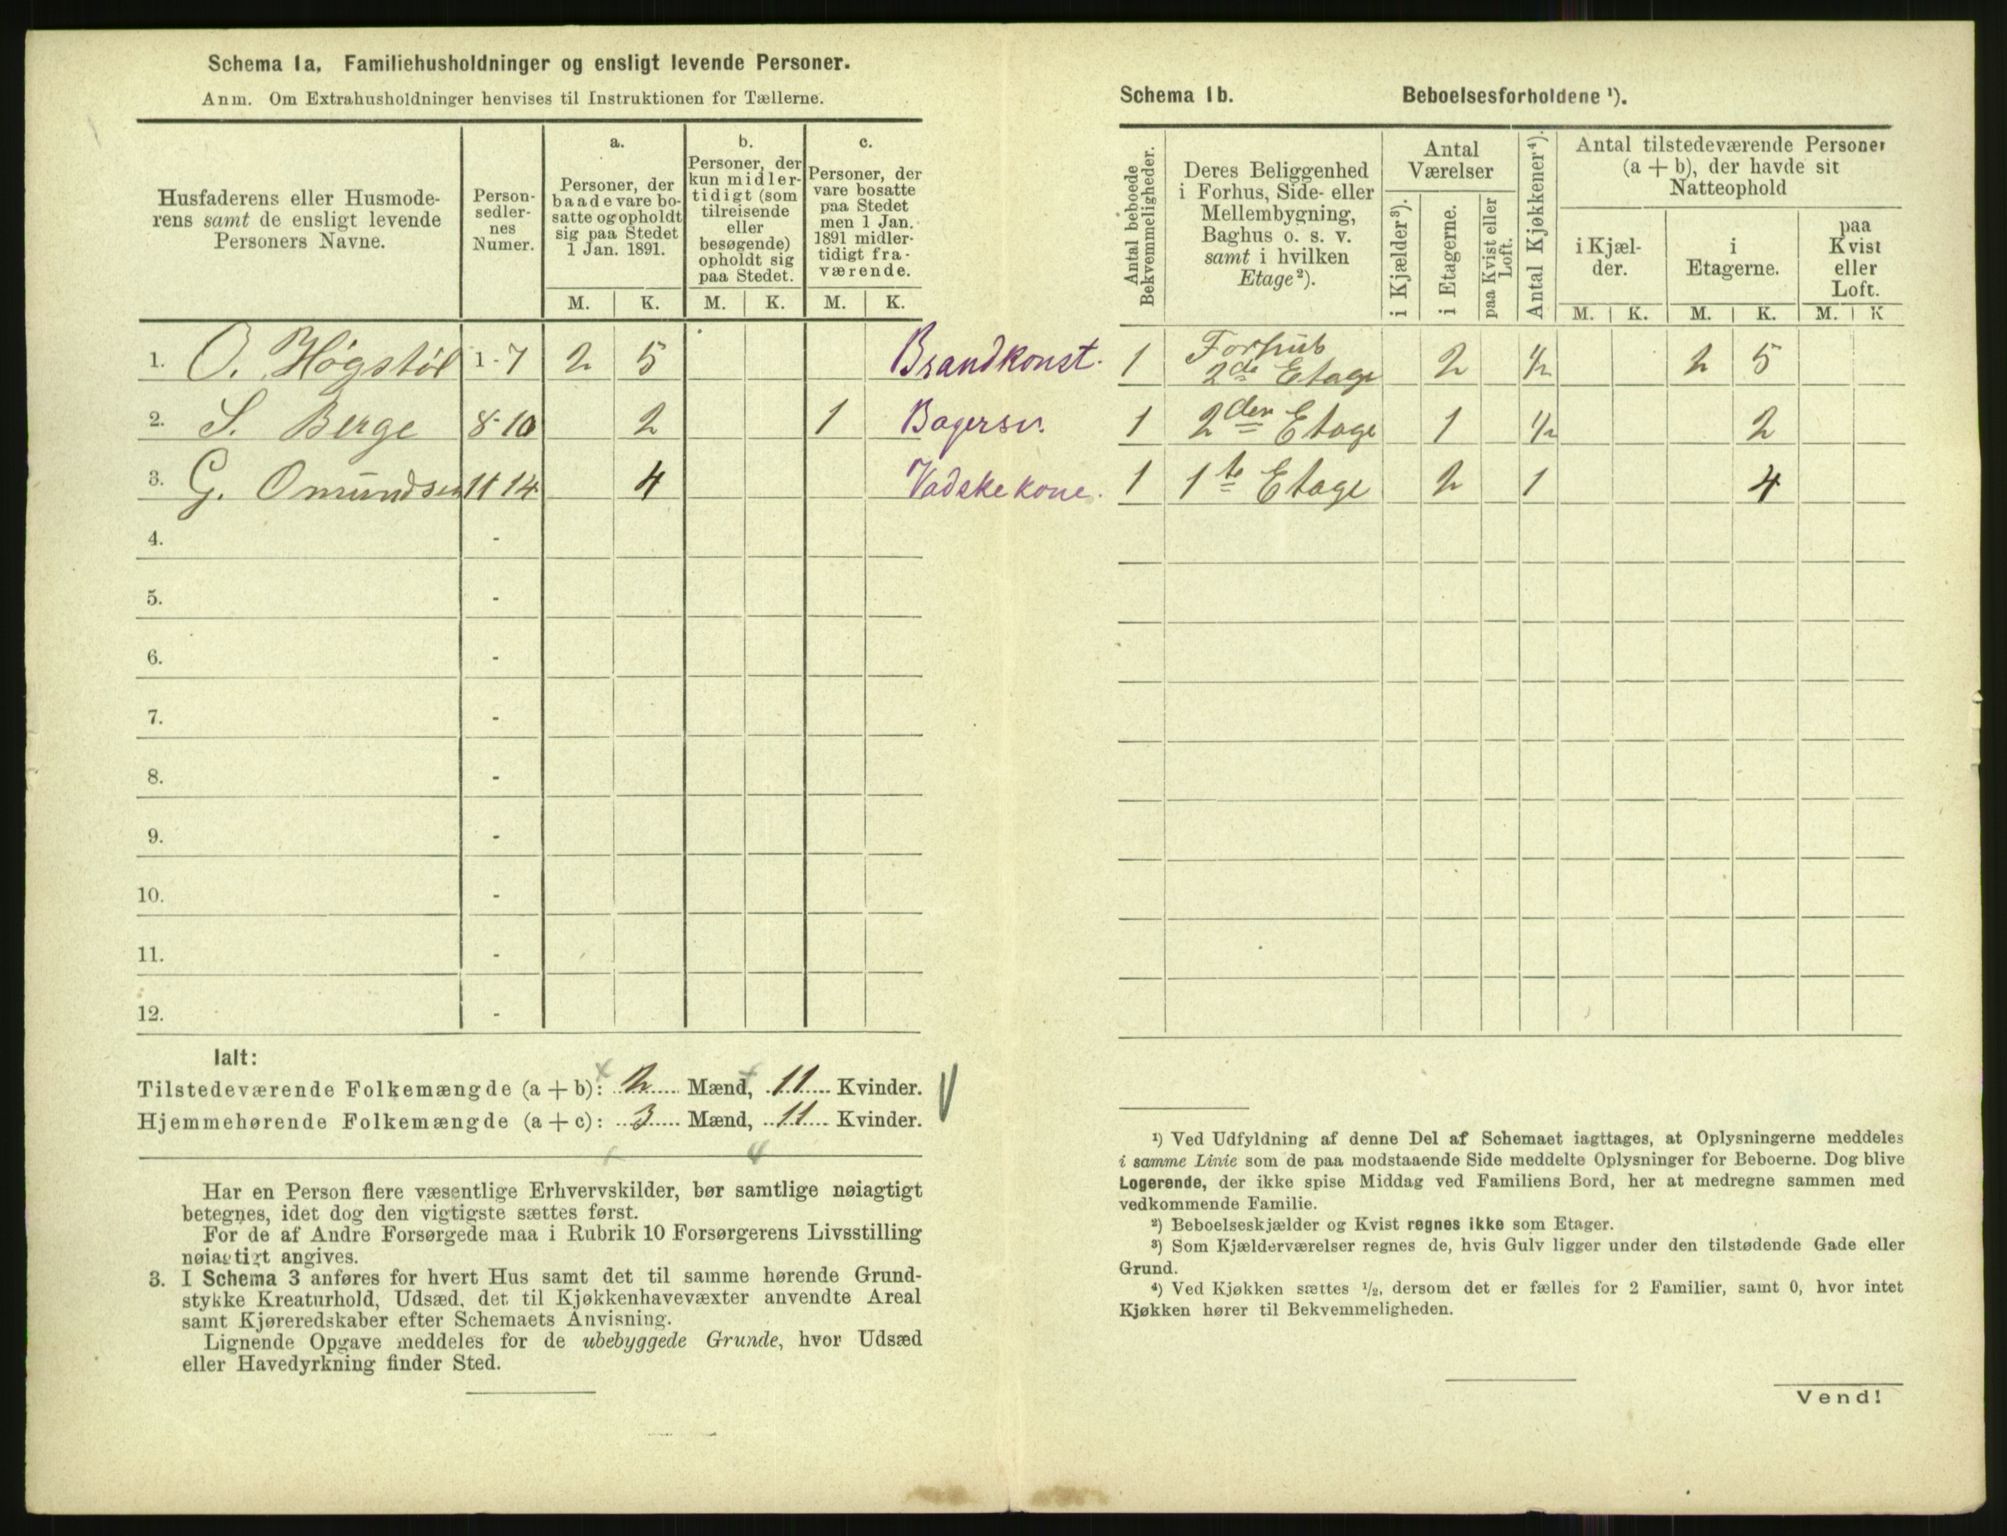 Schema 1a. Familiehusholdninger og ensligt levende Personer.
Anm. Om Extrahusholdninger henvises til Instruktionen for Tællerne.
Husfaderens eller Husmode-
rens samt de ensligt levende
Personers Navne.
Person-
sedler-
nes
Numer.
a.
Personer, der
baade vare bo-
satte og opholdt
sig paa Stedet
1 Jan. 1891.
b.
Personer, der
kun midler-
tidigt (som
tilreisende
eller
besøgende)
opholdt sig
paa Stedet.
c.
Personer, der
vare bosatte
paa Stedet
men 1 Jan.
1891 midler-
tidigt fra-
værende.
M. K. M. K. M. K.
1. O. Høgstøl 1-7 2 5 Brandkonst.
2. S. Berge 8-10 2 1 Bagersv.
3. G. Omundsen 11-14 4 Vadskekone.
4. -
5. -
6. -
7. -
8. -
9. -
10. -
11. -
12. -
Ialt:
Tilstedeværende Folkemængde (a + b): 2 Mænd, 11 Kvinder.
Hjemmehørende Folkemængde (a + c): 3 Mænd, 11 Kvinder.
Har en Person flere væsentlige Erhvervskilder, bør samtlige nøiagtigt
betegnes, idet dog den vigtigste sættes først.
For de af Andre Forsørgede maa i Rubrik 10 Forsørgerens Livsstilling
nøiagtigt angives.
3. I Schema 3 anføres for hvert Hus samt det til samme hørende Grund-
stykke Kreaturhold, Udsæd, det til Kjøkkenhavevæxter anvendte Areal
samt Kjøreredskaber efter Schemaets Anvisning.
Lignende Opgave meddeles for de ubebyggede Grunde, hvor Udsæd
eller Havedyrkning finder Sted.
Schema 1b. Beboelsesforholdene ¹).
Antal beboede
Bekvemmeligheder.
Deres Beliggenhed
i Forhus, Side- eller
Mellembygning,
Baghus o. s. v.
samt i hvilken
Etage²).
Antal
Værelser
i Kjælder³).
i Etagerne.
paa Kvist eller
Loft.
Antal Kjøkkener⁴).
Antal tilstedeværende Personer
(a + b), der havde sit
Natteophold
i Kjæl-
der.
i
Etagerne.
paa
Kvist
eller
Loft.
M. K. M. K. M. K
1 Forhus
2de Etage 2 1/2 2 5
1 2den Etage 1 1/2 2
1 1te Etage 2 1 4
¹) Ved Udfyldning af denne Del af Schemaet iagttages, at Oplysningerne meddeles
i samme Linie som de paa modstaaende Side meddelte Oplysninger for Beboerne. Dog blive
Logerende, der ikke spise Middag ved Familiens Bord, her at medregne sammen med
vedkommende Familie.
²) Beboelseskjælder og Kvist regnes ikke som Etager.
³) Som Kjælderværelser regnes de, hvis Gulv ligger under den tilstødende Gade eller
Grund.
⁴) Ved Kjøkken sættes ¹/₂, dersom det er fælles for 2 Familier, samt 0, hvor intet
Kjøkken hører til Bekvemmeligheden.
Vend!